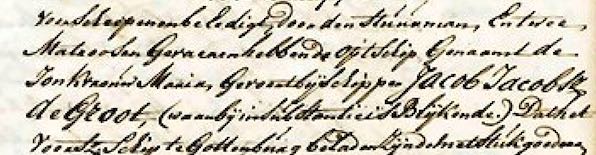 voor Scheepenen beledigt, door den Stuurman, En twee
Matroosen Gevaaren hebbende op't Schip Genaamt de
Jonkvrouw Maria, Gevoert bij schipper Jacob Jacobsz
de Groot, (waar bij in substantie is Blijkende.) Dat het
voorsz Schip te Gottenburg beladen zijnde met stukgoederen